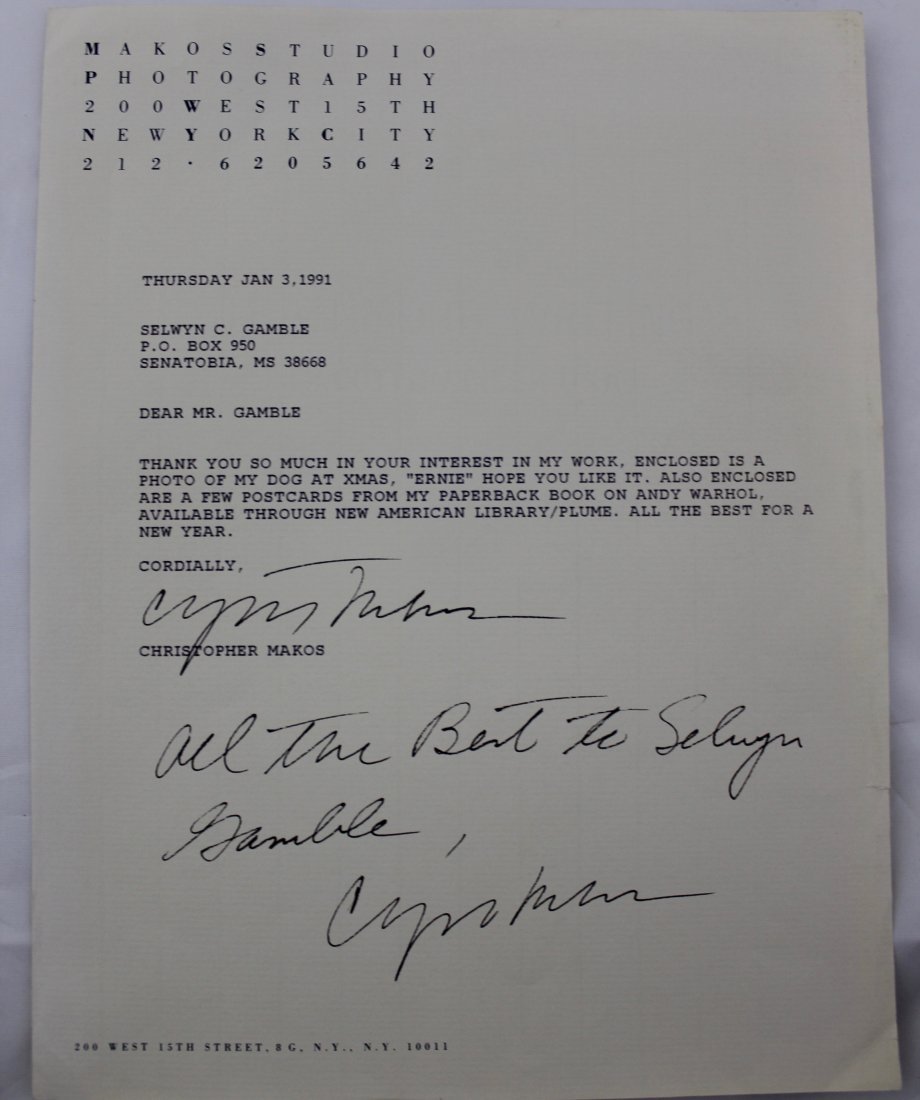 MAKOSSTUDIO
PHOTOGRAPHY
200WEST15TH
NEWYORKCITY
212·6205642
THURSDAY JAN 3,1991
SELWYN C. GAMBLE
P.O. BOX 950
SENATOBIA, MS 38668
DEAR MR. GAMBLE
THANK YOU SO MUCH IN YOUR INTEREST IN MY WORK, ENCLOSED IS A
PHOTO OF MY DOG AT XMAS, "ERNIE" HOPE YOU LIKE IT. ALSO ENCLOSED
ARE A FEW POSTCARDS FROM MY PAPERBACK BOOK ON ANDY WARHOL,
AVAILABLE THROUGH NEW AMERICAN LIBRARY/PLUME. ALL THE BEST FOR A
NEW YEAR.
CORDIALLY,
Christopher Makos
CHRISTOPHER MAKOS
All the Best to Selwyn
Gamble,
Christopher Makos
200 WEST 15TH STREET, 8G, N.Y., N.Y. 10011